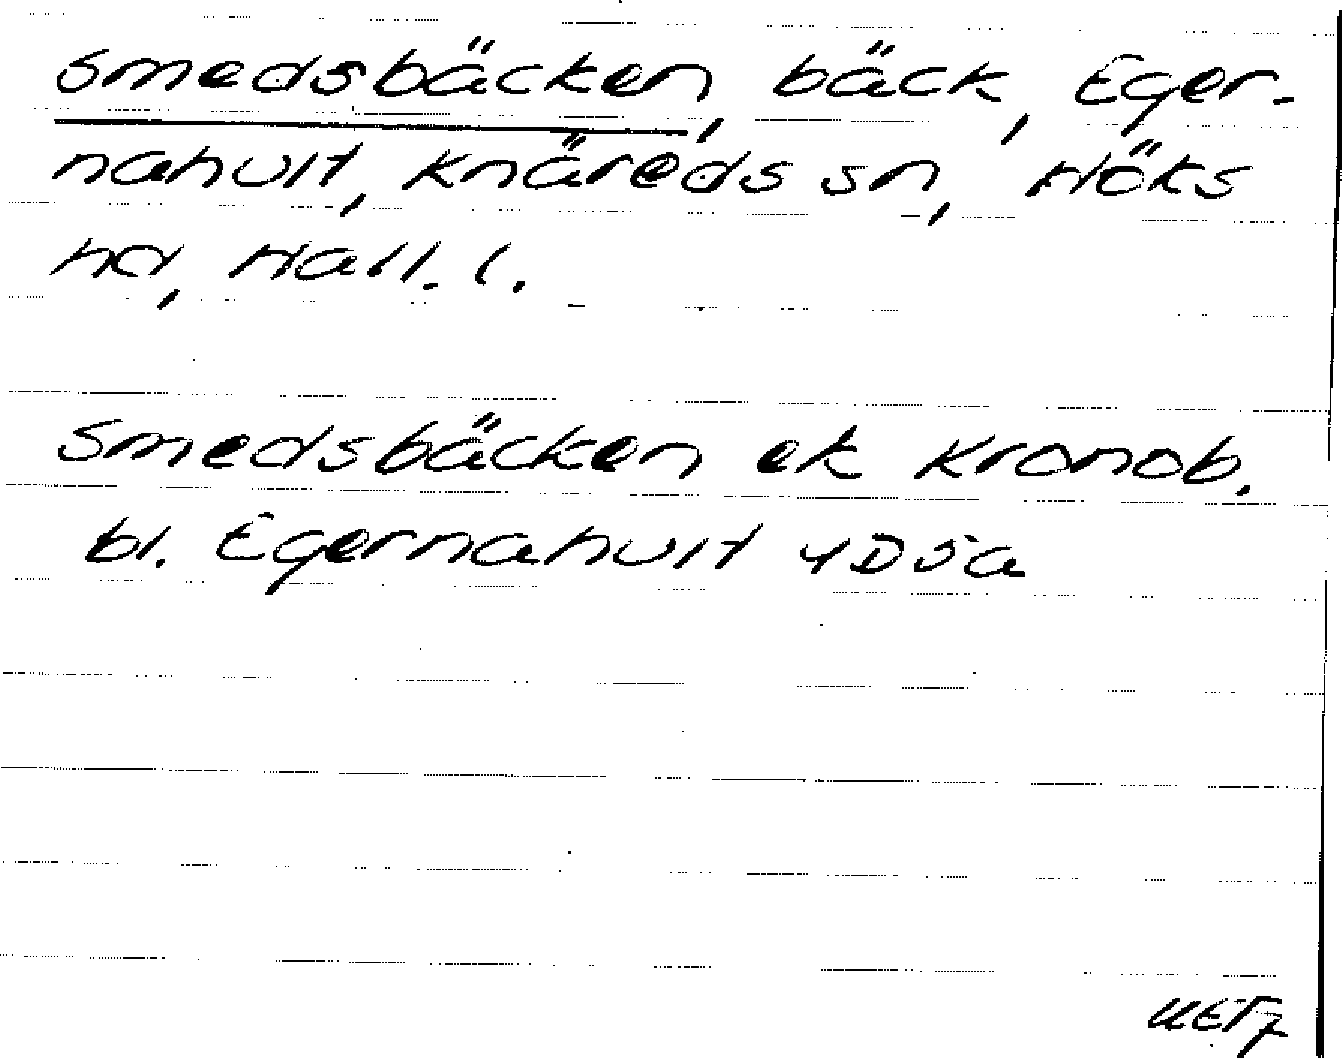 Smedsbäcken, bäck, Eger-
nahult, Knäreds sn, Höks
hd, Hall. l.
Smedsbäcken ek Kronob.
bl. Egernahult 4D5a